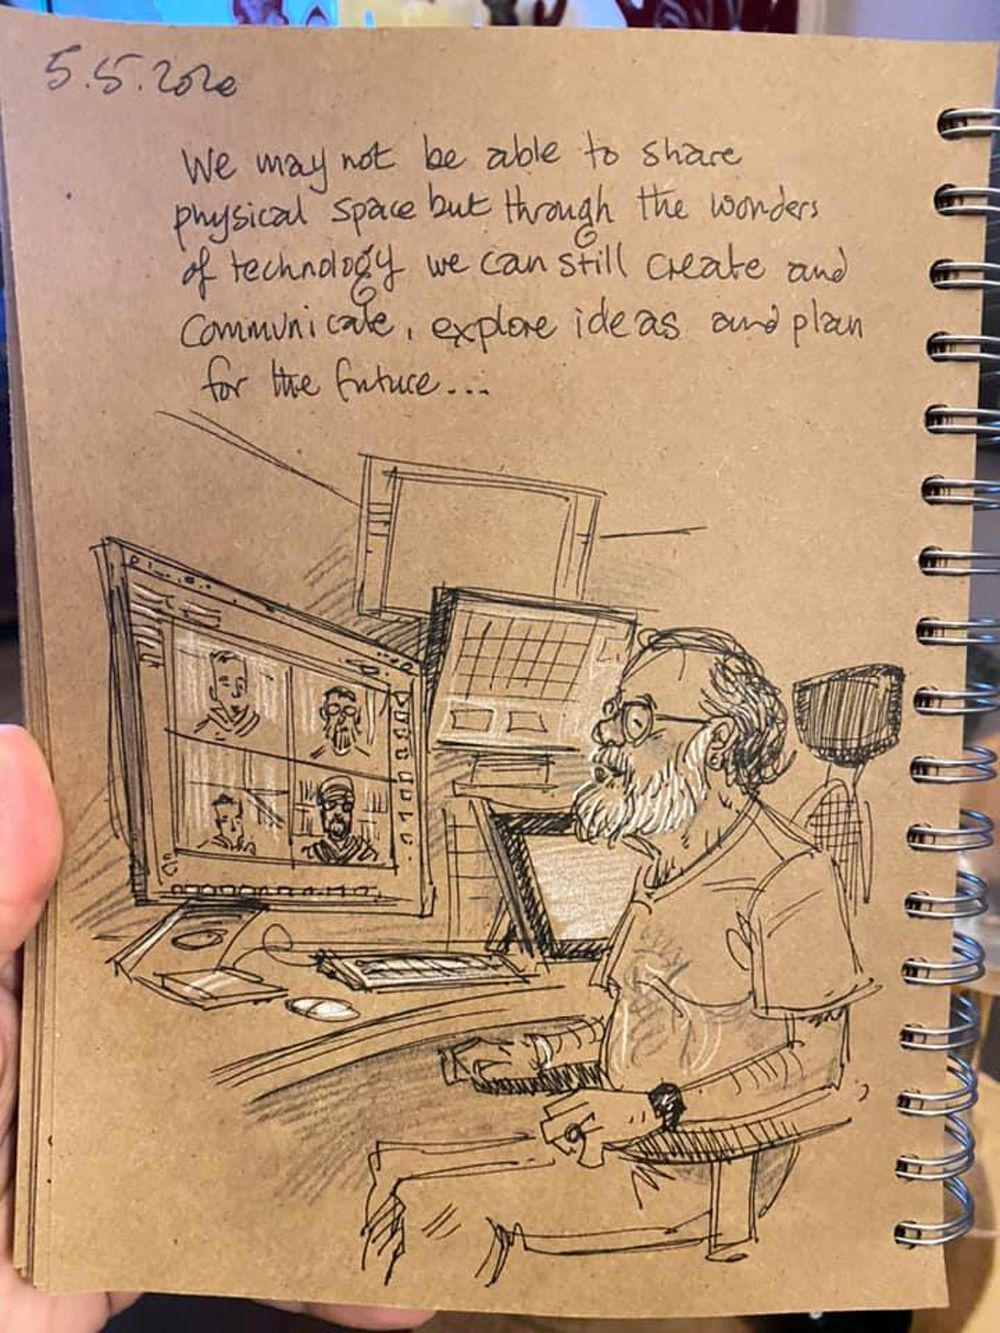 5.5.2020
We may not be able to share
physical space but through the wonders
of technology we can still create and
communicate, explore ideas and plan
for the future...